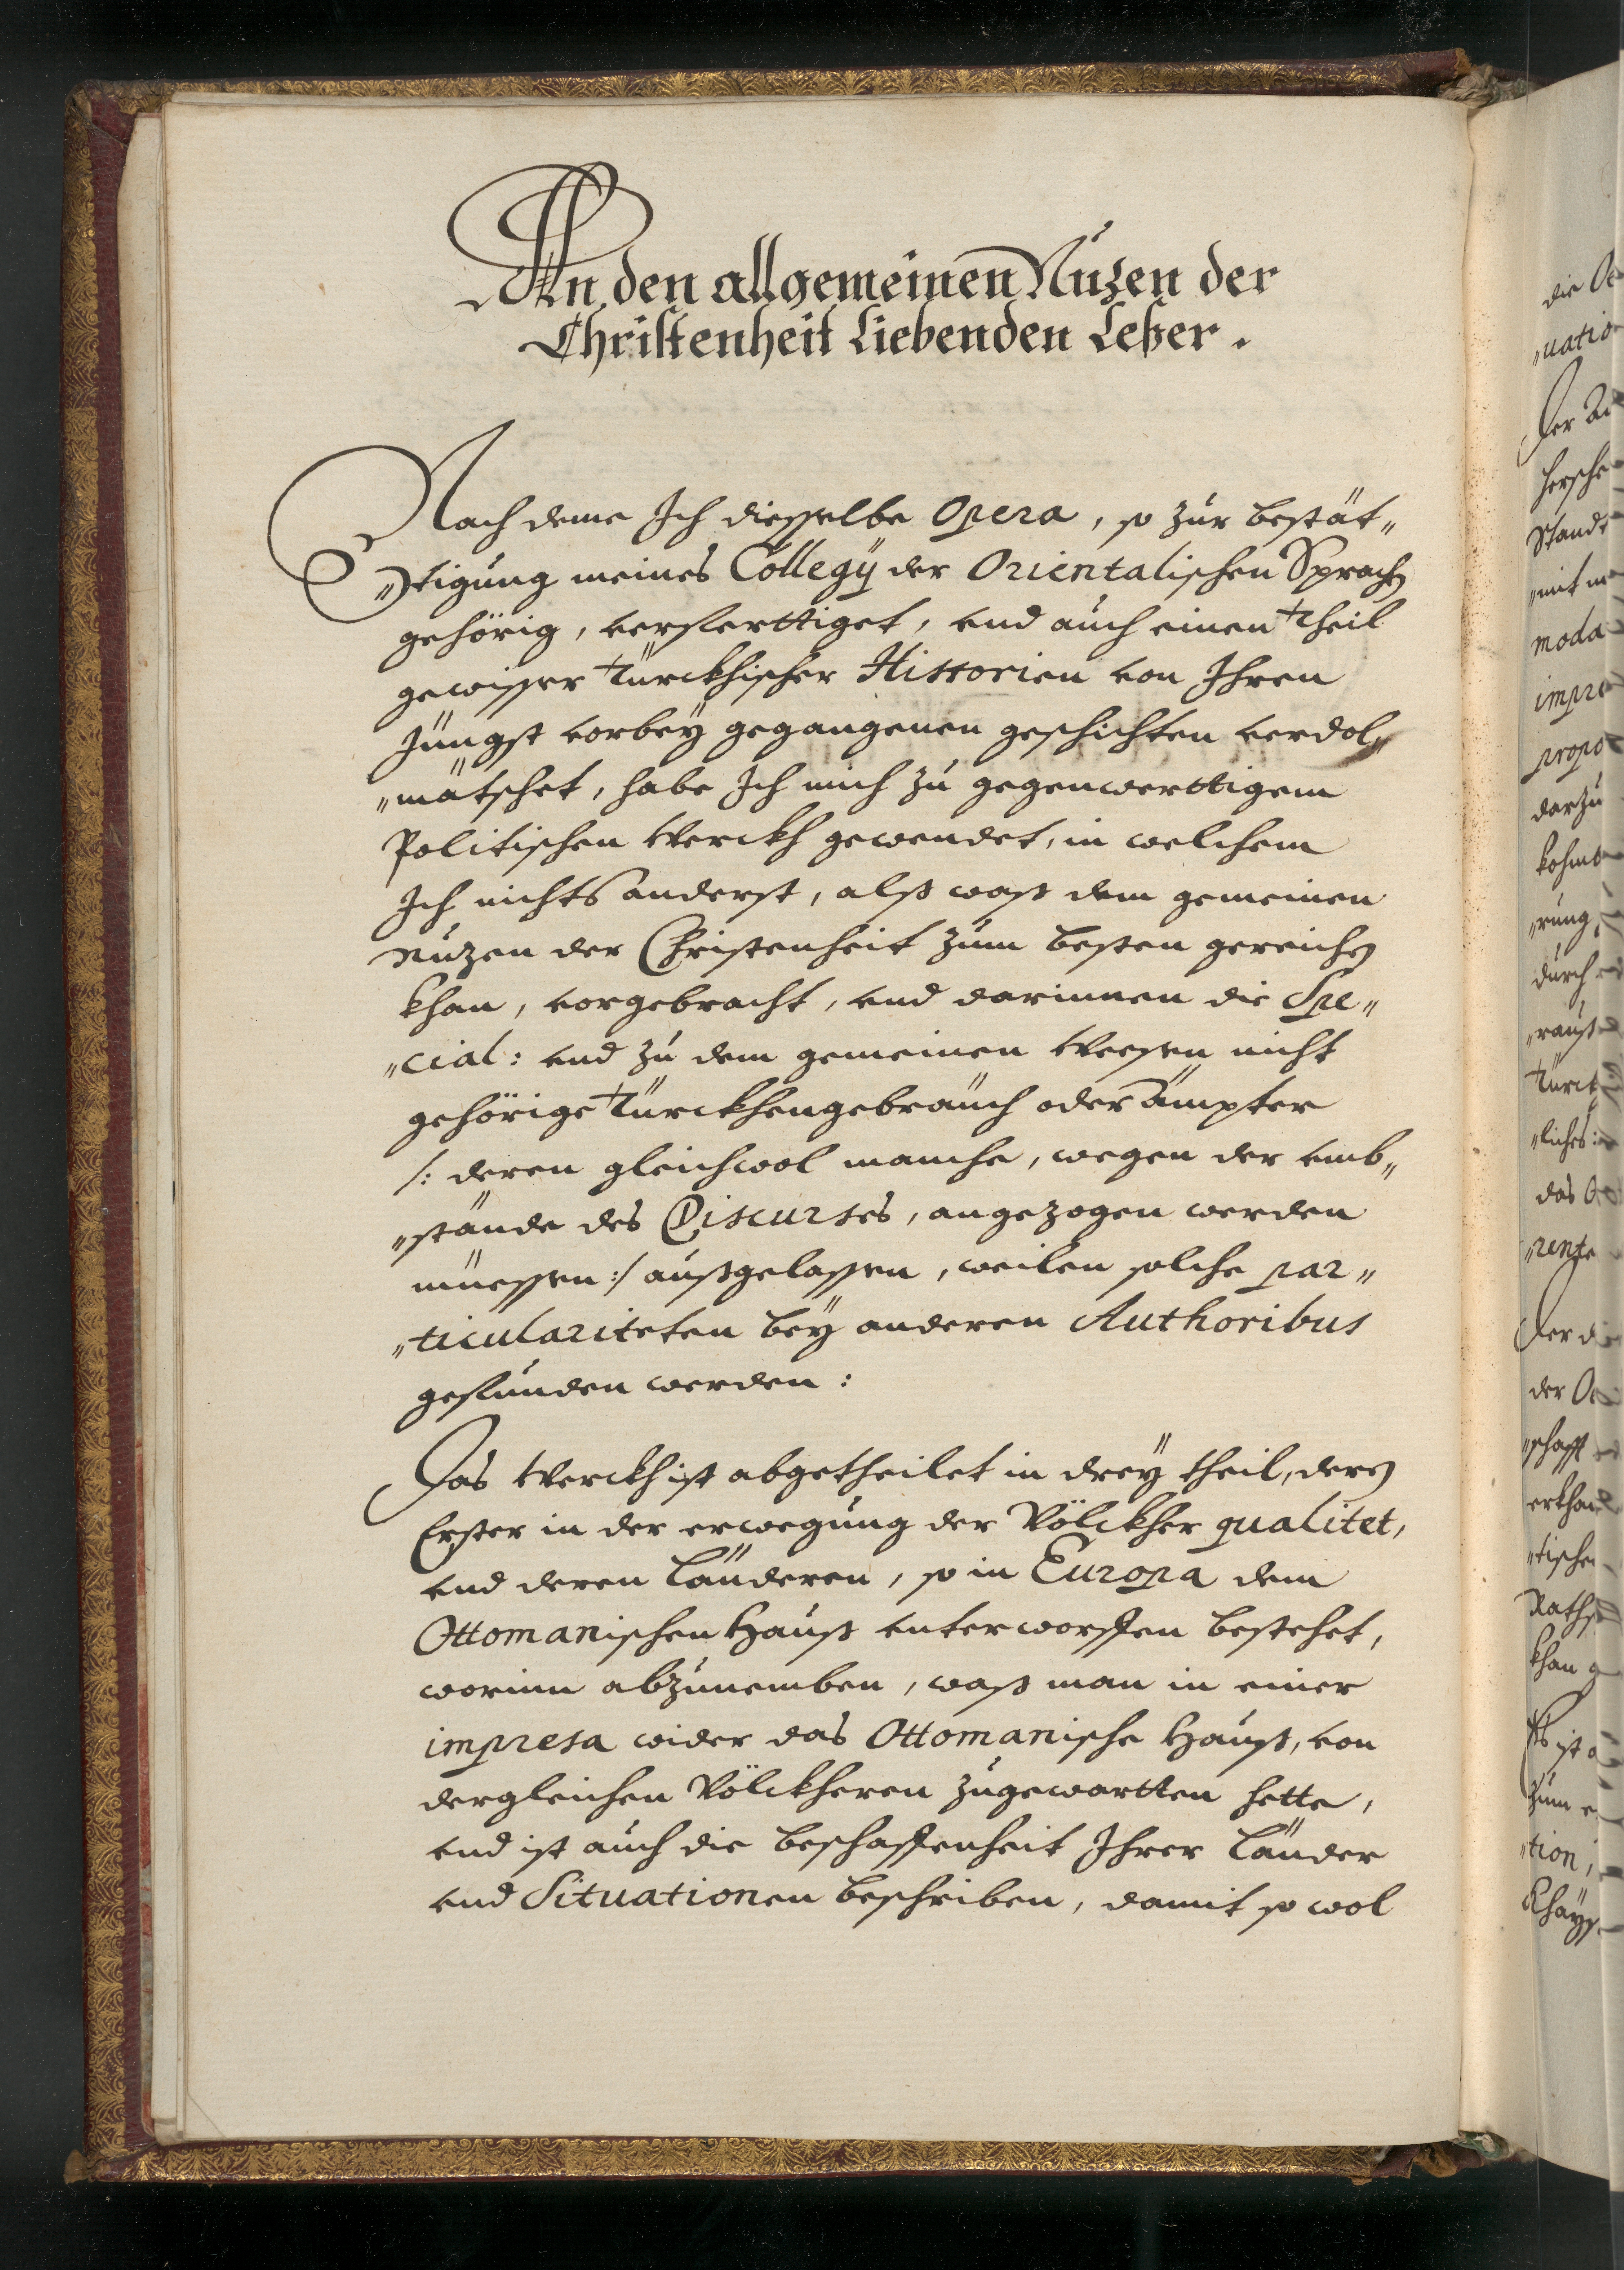 An den allgemeinen Nuzen der
Christenheit Liebenden Leßer.
Nach deme Ich diesselbe Opera, so zur bestät„
„tigung meines Collegÿ der Orientalischen Sprachen
gehörig, verfertiget, vnd auch einen theil
gewisser türckhischer Historien von Ihren
Jüngst vorbeÿ gegangenen geschichten verdol„
„mätschet, habe Ich mich zu gegenwerttigem
Politischen Werckh gewendet, in welchem
Ich nichts anderst, alß waß dem gemeinen
Nuzen der Christenheit zum besten gereichen
khan, vorgebracht, vnd darinnen die Spe„
„cial: vnd zu dem gemeinen Weesen nicht
gehörige Türckhengebräuch oder ämpter
/: deren gleichwol manche, wegen der vmb„
„stände des Discurses, angezogen werden
müessen :/ außgelassen, weilen solche par„
„ticulariteten beÿ anderen Authoribus
gefunden werden:
Das Werckh ist abgetheilet in dreÿ theil, deren
Erster in der erwegung der Völckher qualitet,
vnd deren Länderen, so in Europa dem
Ottomanischen Hauß vnterworffen bestehet,
worinn abzunemben, waß man in einer
impresa wider das Ottomanische Hauß, von
dergleichen Völckheren zugewartten hette,
vnd ist auch die beschaffenheit Ihrer Länder
vnd Situationen beschriben, damit so wol